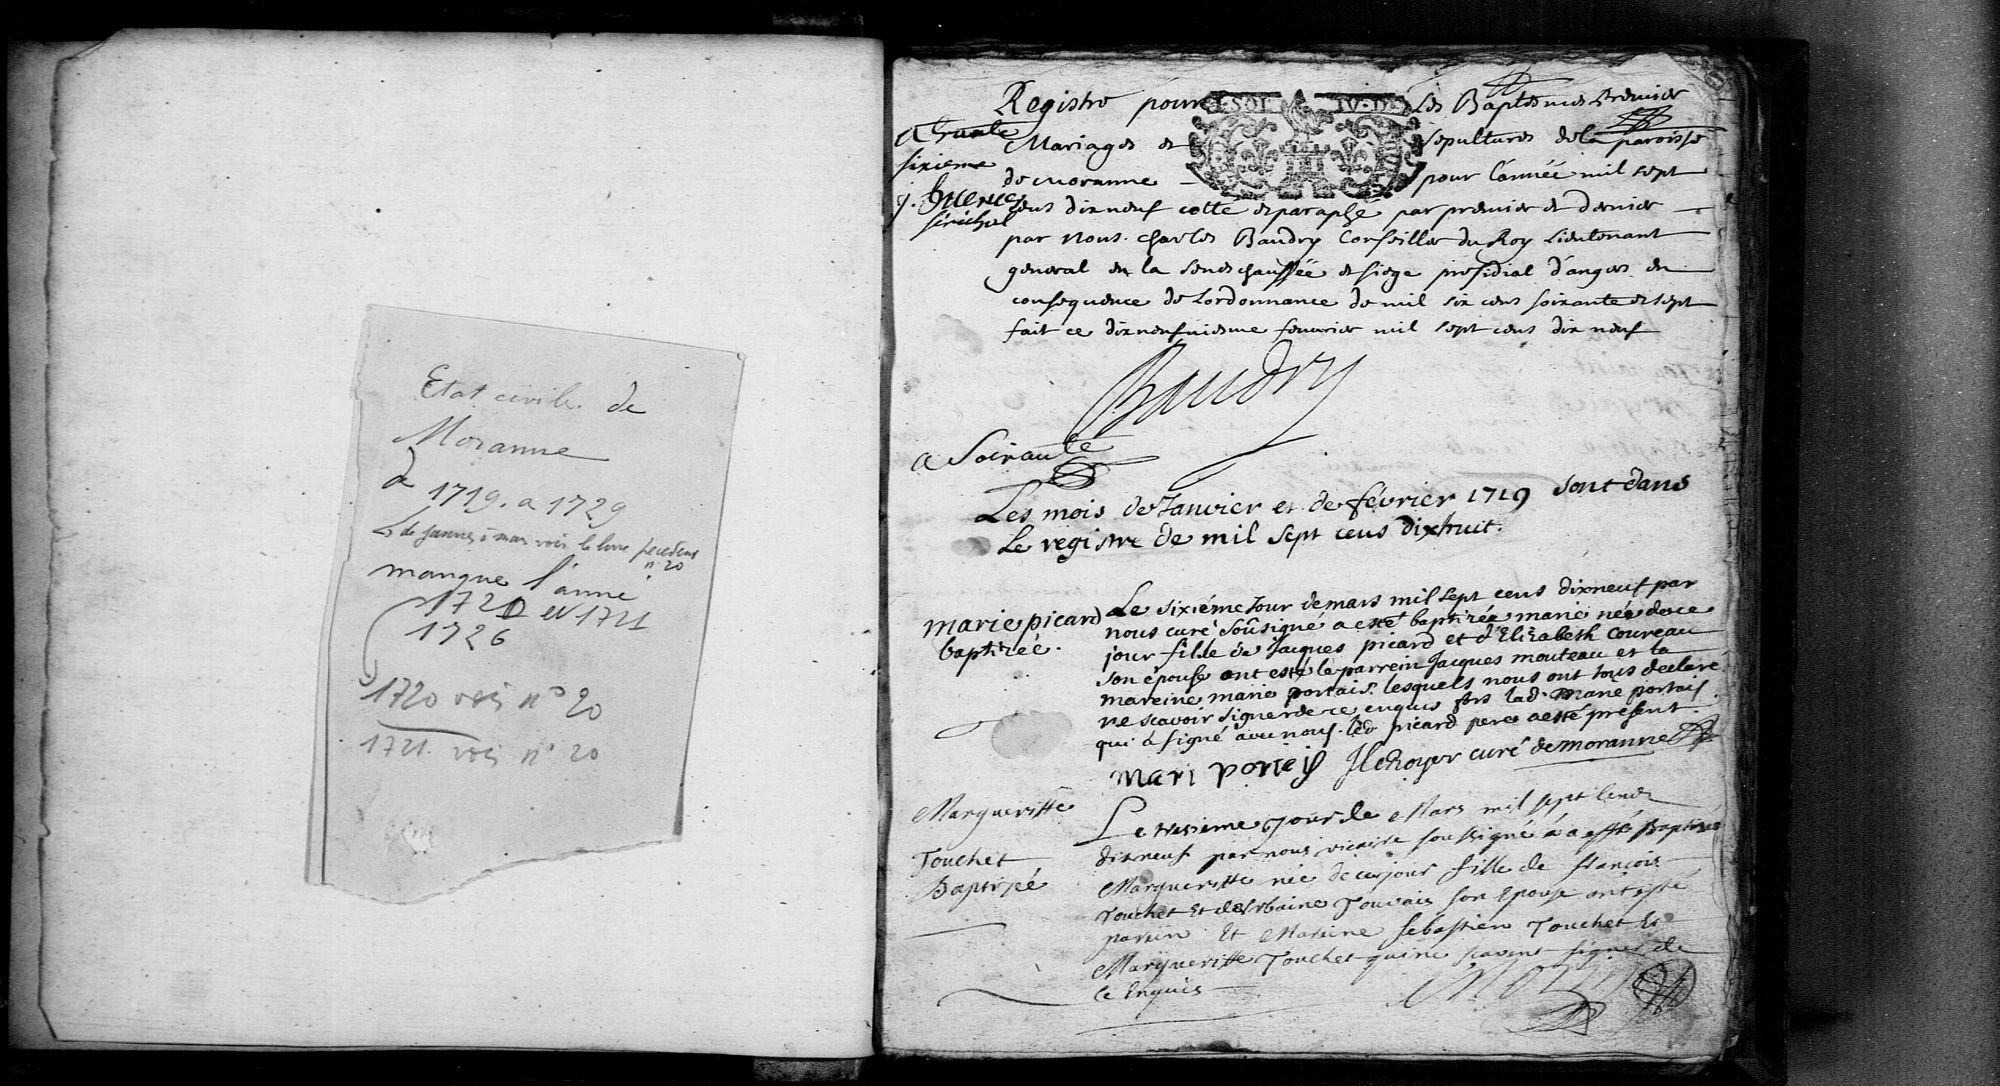 Etat civile de
Moranne
de
1719. a 1729
de janvier à mars voir le livre precedent
n° 20
manque l'anné
1720 et 1721
1726
1720 voir n° 20
1721. voir n° 20
Registre pour Les Baptesmes Premier
Mariages et sepultures de la paroisse
de Moranne pour l'année mil sept
cens dix neuf cotté et paraphé par premier et dernier
par Nous Charles Baudry Conseiller du Roy Lieutenant
general en la seneschaussée et siege presidial d'angers en
consequence de l'ordonnance de mil six cens soixante et sept
fait ce dix neufuiesme feuurier mil sept cens dix neuf
a trente
sixieme
Baudry
a Soixante
Les mois de Janvier et de février 1719 sont dans
Le registre de mil sept cens dixhuit.
marie picard
baptizée.
Le sixiéme jour de mars mil sept cens dixneuf par
nous curé soûsigné a esté baptizée marie née de ce
jour fille de Jacques picard et d'Elizabeth Coureau
son épouse ont esté le parrein Jacques mouteau et la
mareine marie portais. lesquels nous ont tous declaré
ne scavoir signer de ce enquis fors lad. marie portais
qui a signé avec nous. led. picard pere a esté présent.
Mari porteis curé de moranne
Margueritte
Touchet
Baptizée
Le tresieme Jour de Mars mil sept Cents
dix neuf par nous vicaire soussigné à a esté Baptizée
Margueritte née de ce jour fille de francois
Touchet Et de Urbaine Jouvais son Epouse ont esté
parein Et Mareine Sebastien Touchet Et
Margueritte Touchet qui ne scavent signer de
Ce Enquis